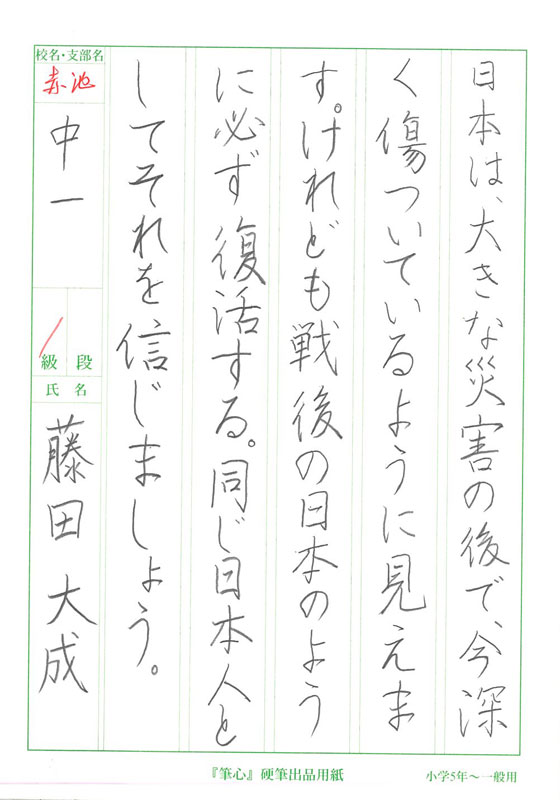 日本は、大きな災害の後で、今深
く傷ついているように見えま
す。けれども戦後の日本のよう
に必ず復活する。同じ日本人と
してそれを信じましょう。
校名・支部名
赤池
中一
級 段
氏名
藤田大成
『筆心』硬筆出品用紙
小学5年～一般用